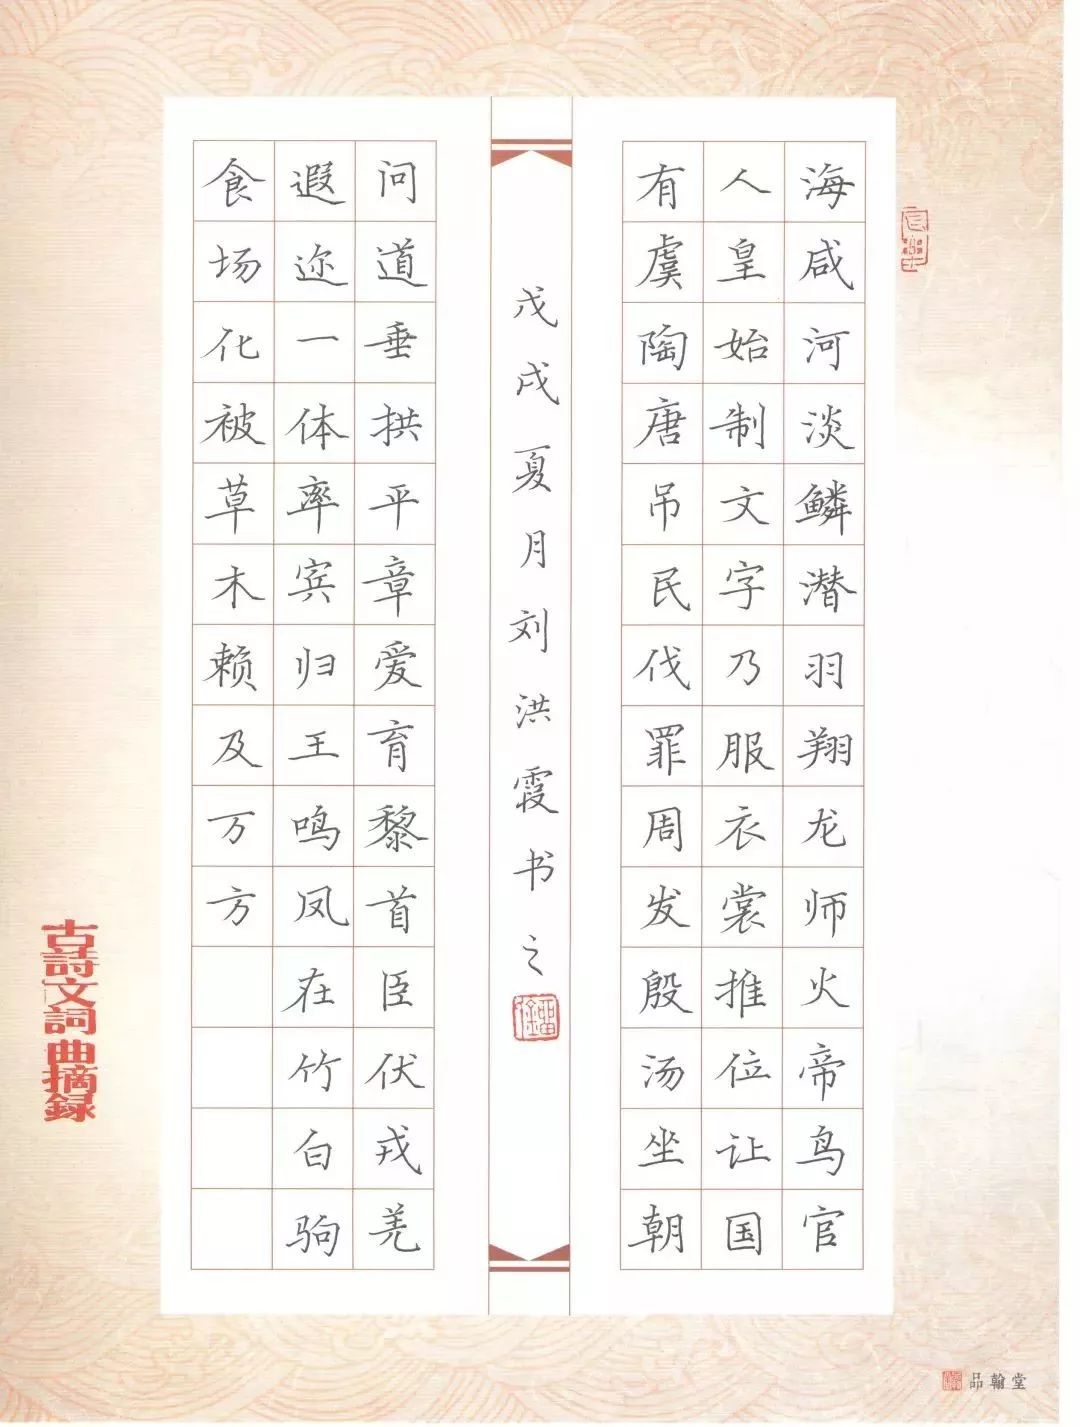 海咸河淡鳞潜羽翔龙师火帝鸟官
人皇始制文字乃服衣裳推位让国
有虞陶唐吊民伐罪周发殷汤坐朝
戊戌夏月刘洪霞书之
问道垂拱平章爱育黎首臣伏戎羌
遐迩一体率宾归王鸣凤在竹白驹
食场化被草木赖及万方
古詩文詞曲摘録
品翰堂